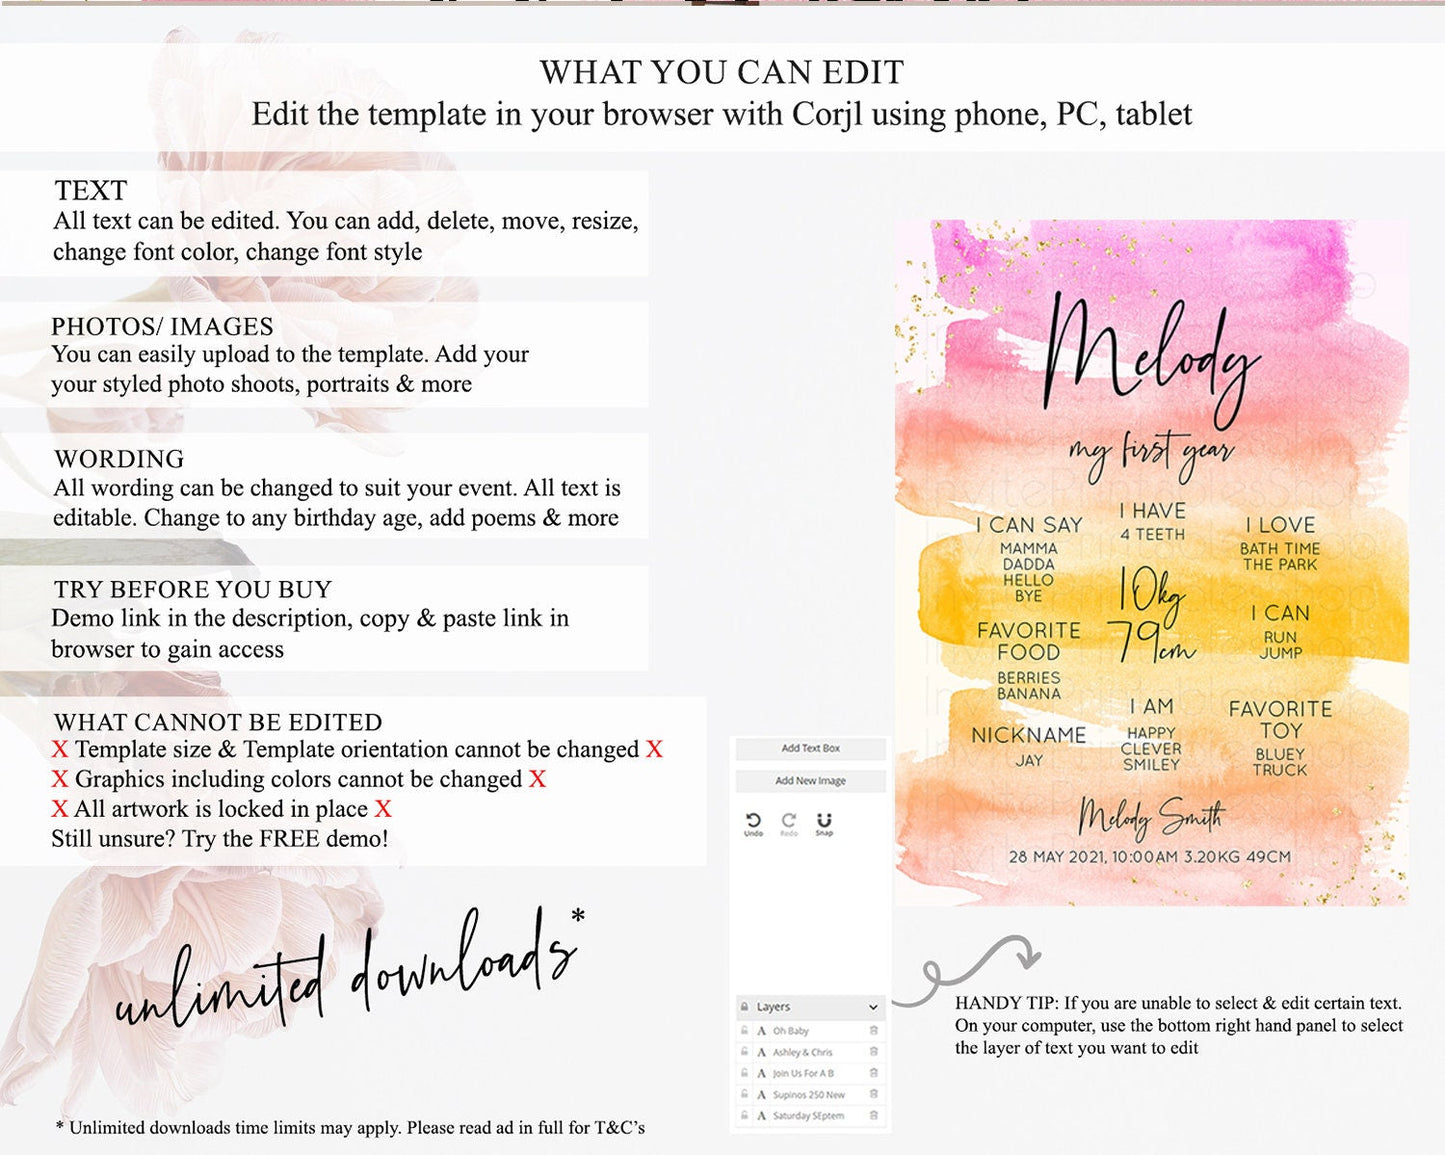 WHAT YOU CAN EDIT
Edit the template in your browser with Corjl using phone, PC, tablet
TEXT
All text can be edited. You can add, delete, move, resize,
change font color, change font style
PHOTOS/ IMAGES
You can easily upload to the template. Add your
your styled photo shoots, portraits & more
WORDING
All wording can be changed to suit your event. All text is
editable. Change to any birthday age, add poems & more
TRY BEFORE YOU BUY
Demo link in the description, copy & paste link in
browser to gain access
WHAT CANNOT BE EDITED
X Template size & Template orientation cannot be changed X
X Graphics including colors cannot be changed X
X All artwork is locked in place X
Still unsure? Try the FREE demo!
unlimited downloads*
* Unlimited downloads time limits may apply. Please read ad in full for T&C's
Add Text Box
Add New Image
Undo Redo Snap
Layers
A Oh Baby
A Ashley & Chris
A Join Us For A B
A Supinos 250 New
A Saturday SEptem
Melody
my first year
I CAN SAY
MAMMA
DADDA
HELLO
BYE
FAVORITE
FOOD
BERRIES
BANANA
NICKNAME
JAY
I HAVE
4 TEETH
10kg
79cm
I AM
HAPPY
CLEVER
SMILEY
I LOVE
BATH TIME
THE PARK
I CAN
RUN
JUMP
FAVORITE
TOY
BLUEY
TRUCK
Melody Smith
28 MAY 2021, 10:00AM 3.20KG 49CM
HANDY TIP: If you are unable to select & edit certain text.
On your computer, use the bottom right hand panel to select
the layer of text you want to edit